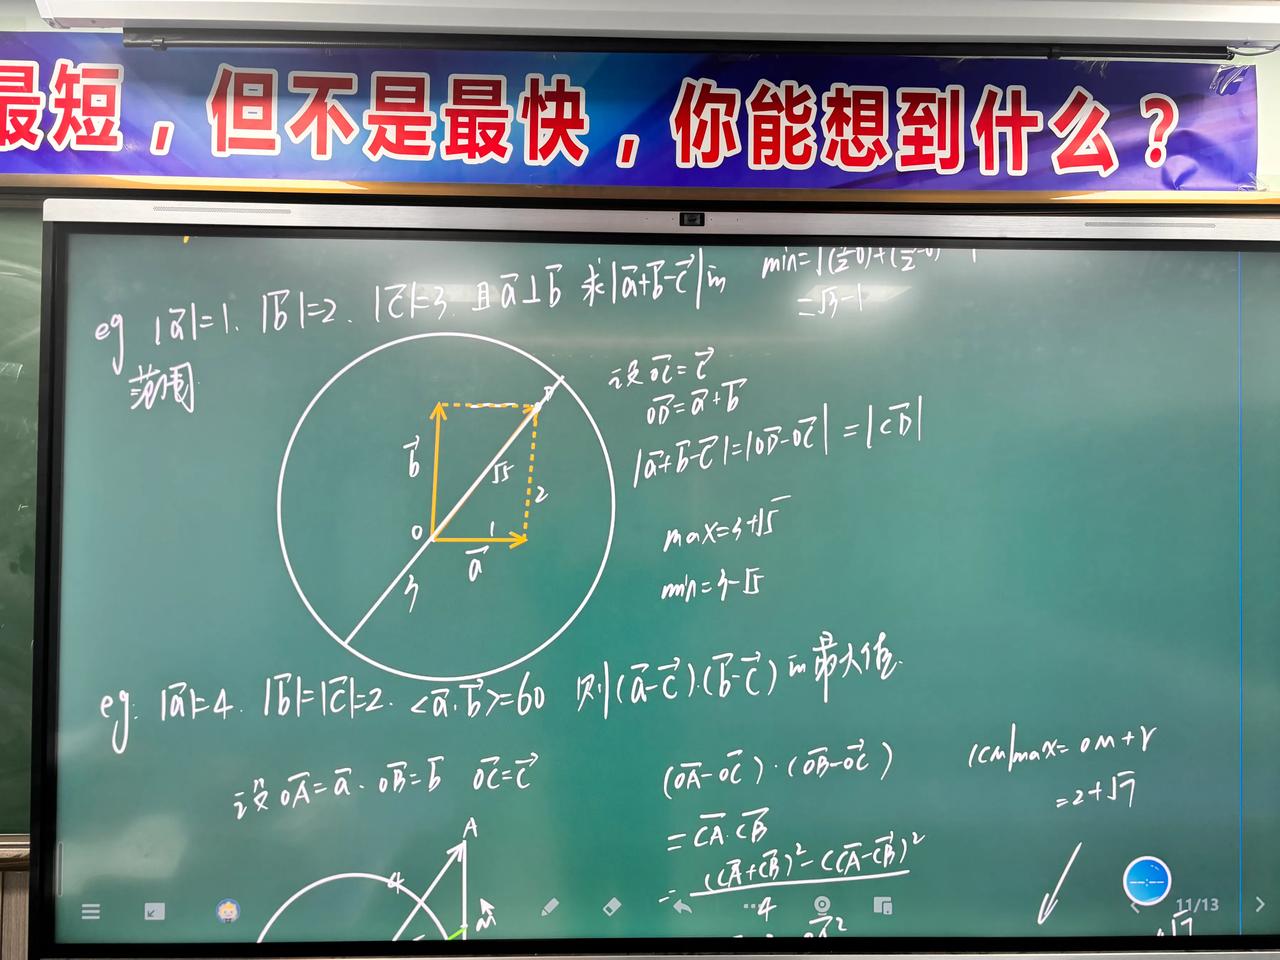 最短，但不是最快，你能想到什么？
eg |a⃗|=1. |b⃗|=2. |c⃗|=3. 且a⃗⊥b⃗ 求|a⃗+b⃗-c⃗|的
范围
=√3-1
设 OC⃗=c⃗
OD⃗=a⃗+b⃗
|a⃗+b⃗-c⃗|=|OD⃗-OC⃗|=|CD⃗|
max=3+√5
min=3-√5
b⃗
√5
2
O
1
a⃗
3
eg. |a⃗|=4. |b⃗|=|c⃗|=2. <a⃗.b⃗>=60 则(a⃗-c⃗).(b⃗-c⃗)的最大值.
设 OA⃗=a⃗. OB⃗=b⃗ OC⃗=c⃗
(OA⃗-OC⃗)·(OB⃗-OC⃗)
=CA⃗.CB⃗
=((CA⃗+CB⃗)²-(CA⃗-CB⃗)²)/4
|CM|max=OM+r
=2+√7
A
4
M
√7
11/13